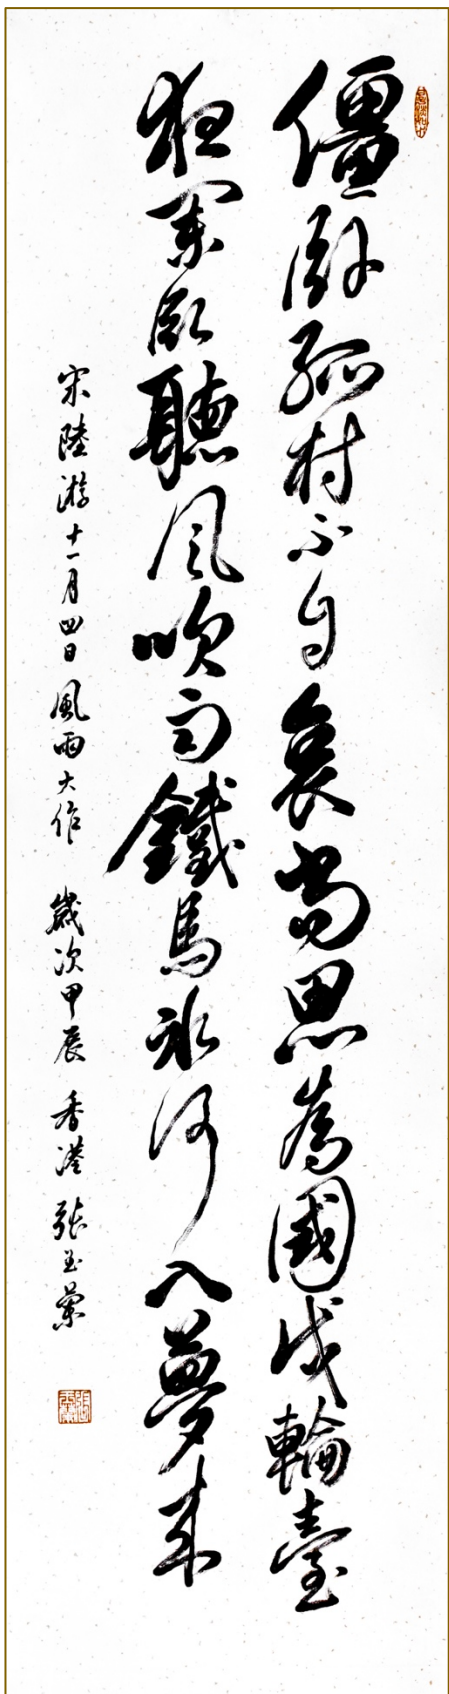 僵臥孤村不自哀尚思為國戍輪臺
夜闌臥聽風吹雨鐵馬冰河入夢來
宋陸游十一月四日風雨大作 歲次甲辰 香港 張玉蘭